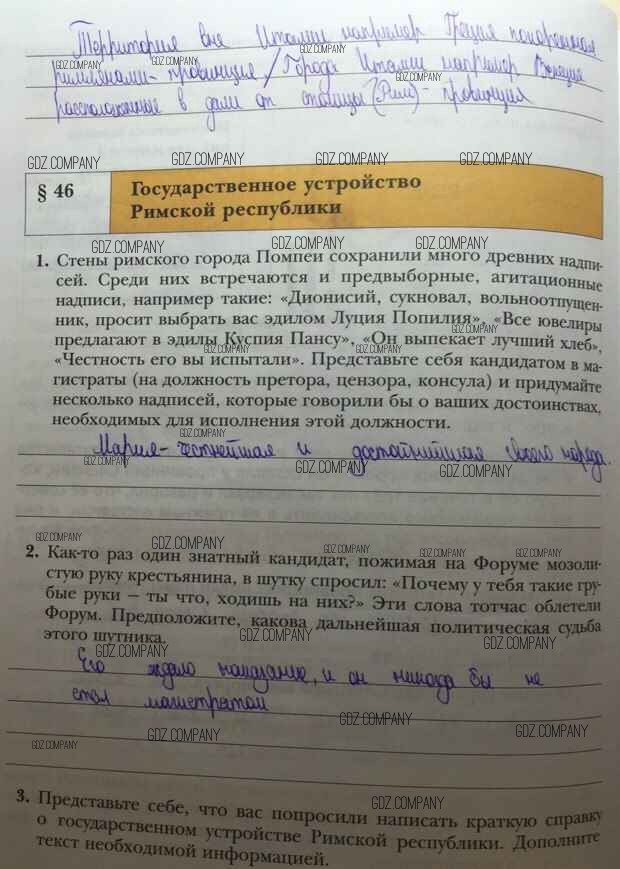 Территория вне Италии например Греция покоренная
римлянами - провинция / Города Италии например Венеция
расположенные в дали от столицы (Рим) - провинция
GDZ.COMPANY
§ 46
Государственное устройство
Римской республики
1. Стены римского города Помпеи сохранили много древних надпи-
сей. Среди них встречаются и предвыборные, агитационные
надписи, например такие: «Дионисий, сукновал, вольноотпущен-
ник, просит выбрать вас эдилом Луция Попилия», «Все ювелиры
предлагают в эдилы Куспия Пансу», «Он выпекает лучший хлеб»,
«Честность его вы испытали». Представьте себя кандидатом в ма-
гистраты (на должность претора, цензора, консула) и придумайте
несколько надписей, которые говорили бы о ваших достоинствах,
необходимых для исполнения этой должности.
Мария - честнейшая и достойнейшая своего народа.
2. Как-то раз один знатный кандидат, пожимая на Форуме мозоли-
стую руку крестьянина, в шутку спросил: «Почему у тебя такие гру-
бые руки – ты что, ходишь на них?» Эти слова тотчас облетели
Форум. Предположите, какова дальнейшая политическая судьба
этого шутника.
Его ждало наказание, и он никогда бы не
стал магистратом
3. Представьте себе, что вас попросили написать краткую справку
о государственном устройстве Римской республики. Дополните
текст необходимой информацией.